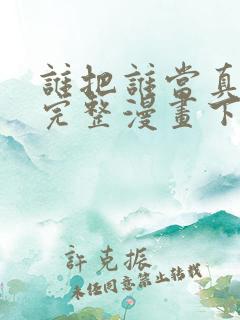 誰把誰當真
完整漫畫下
許克振
未经同意禁止转载